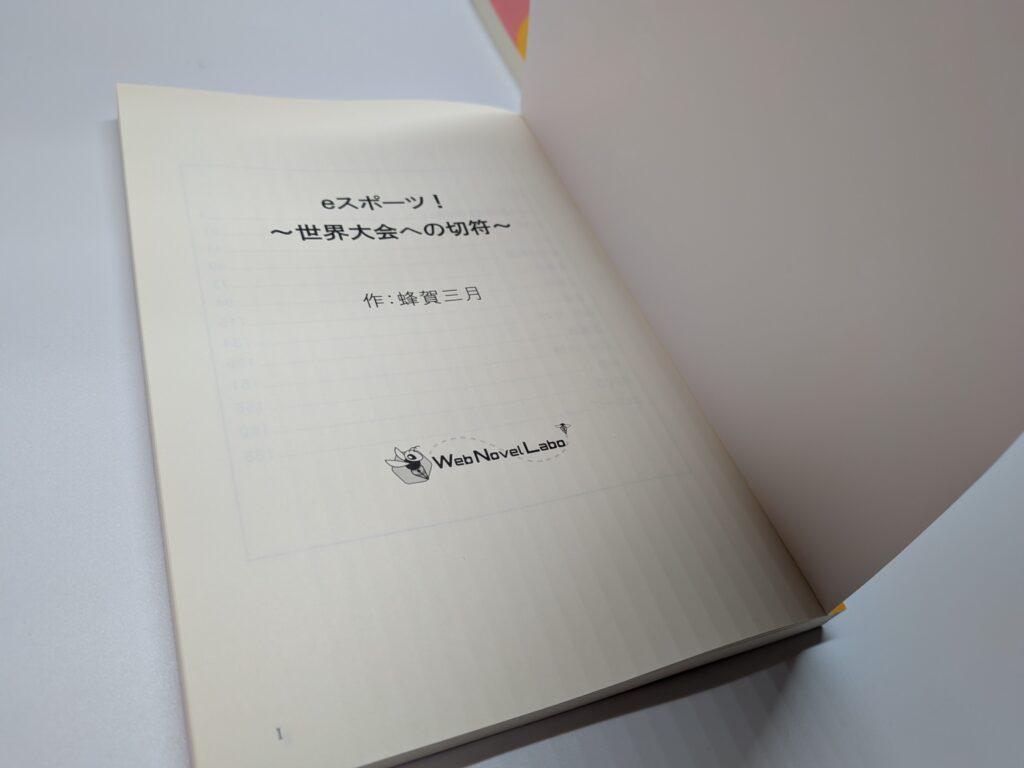 eスポーツ！
～世界大会への切符～
作：蜂賀三月
Web Novel Labo
1